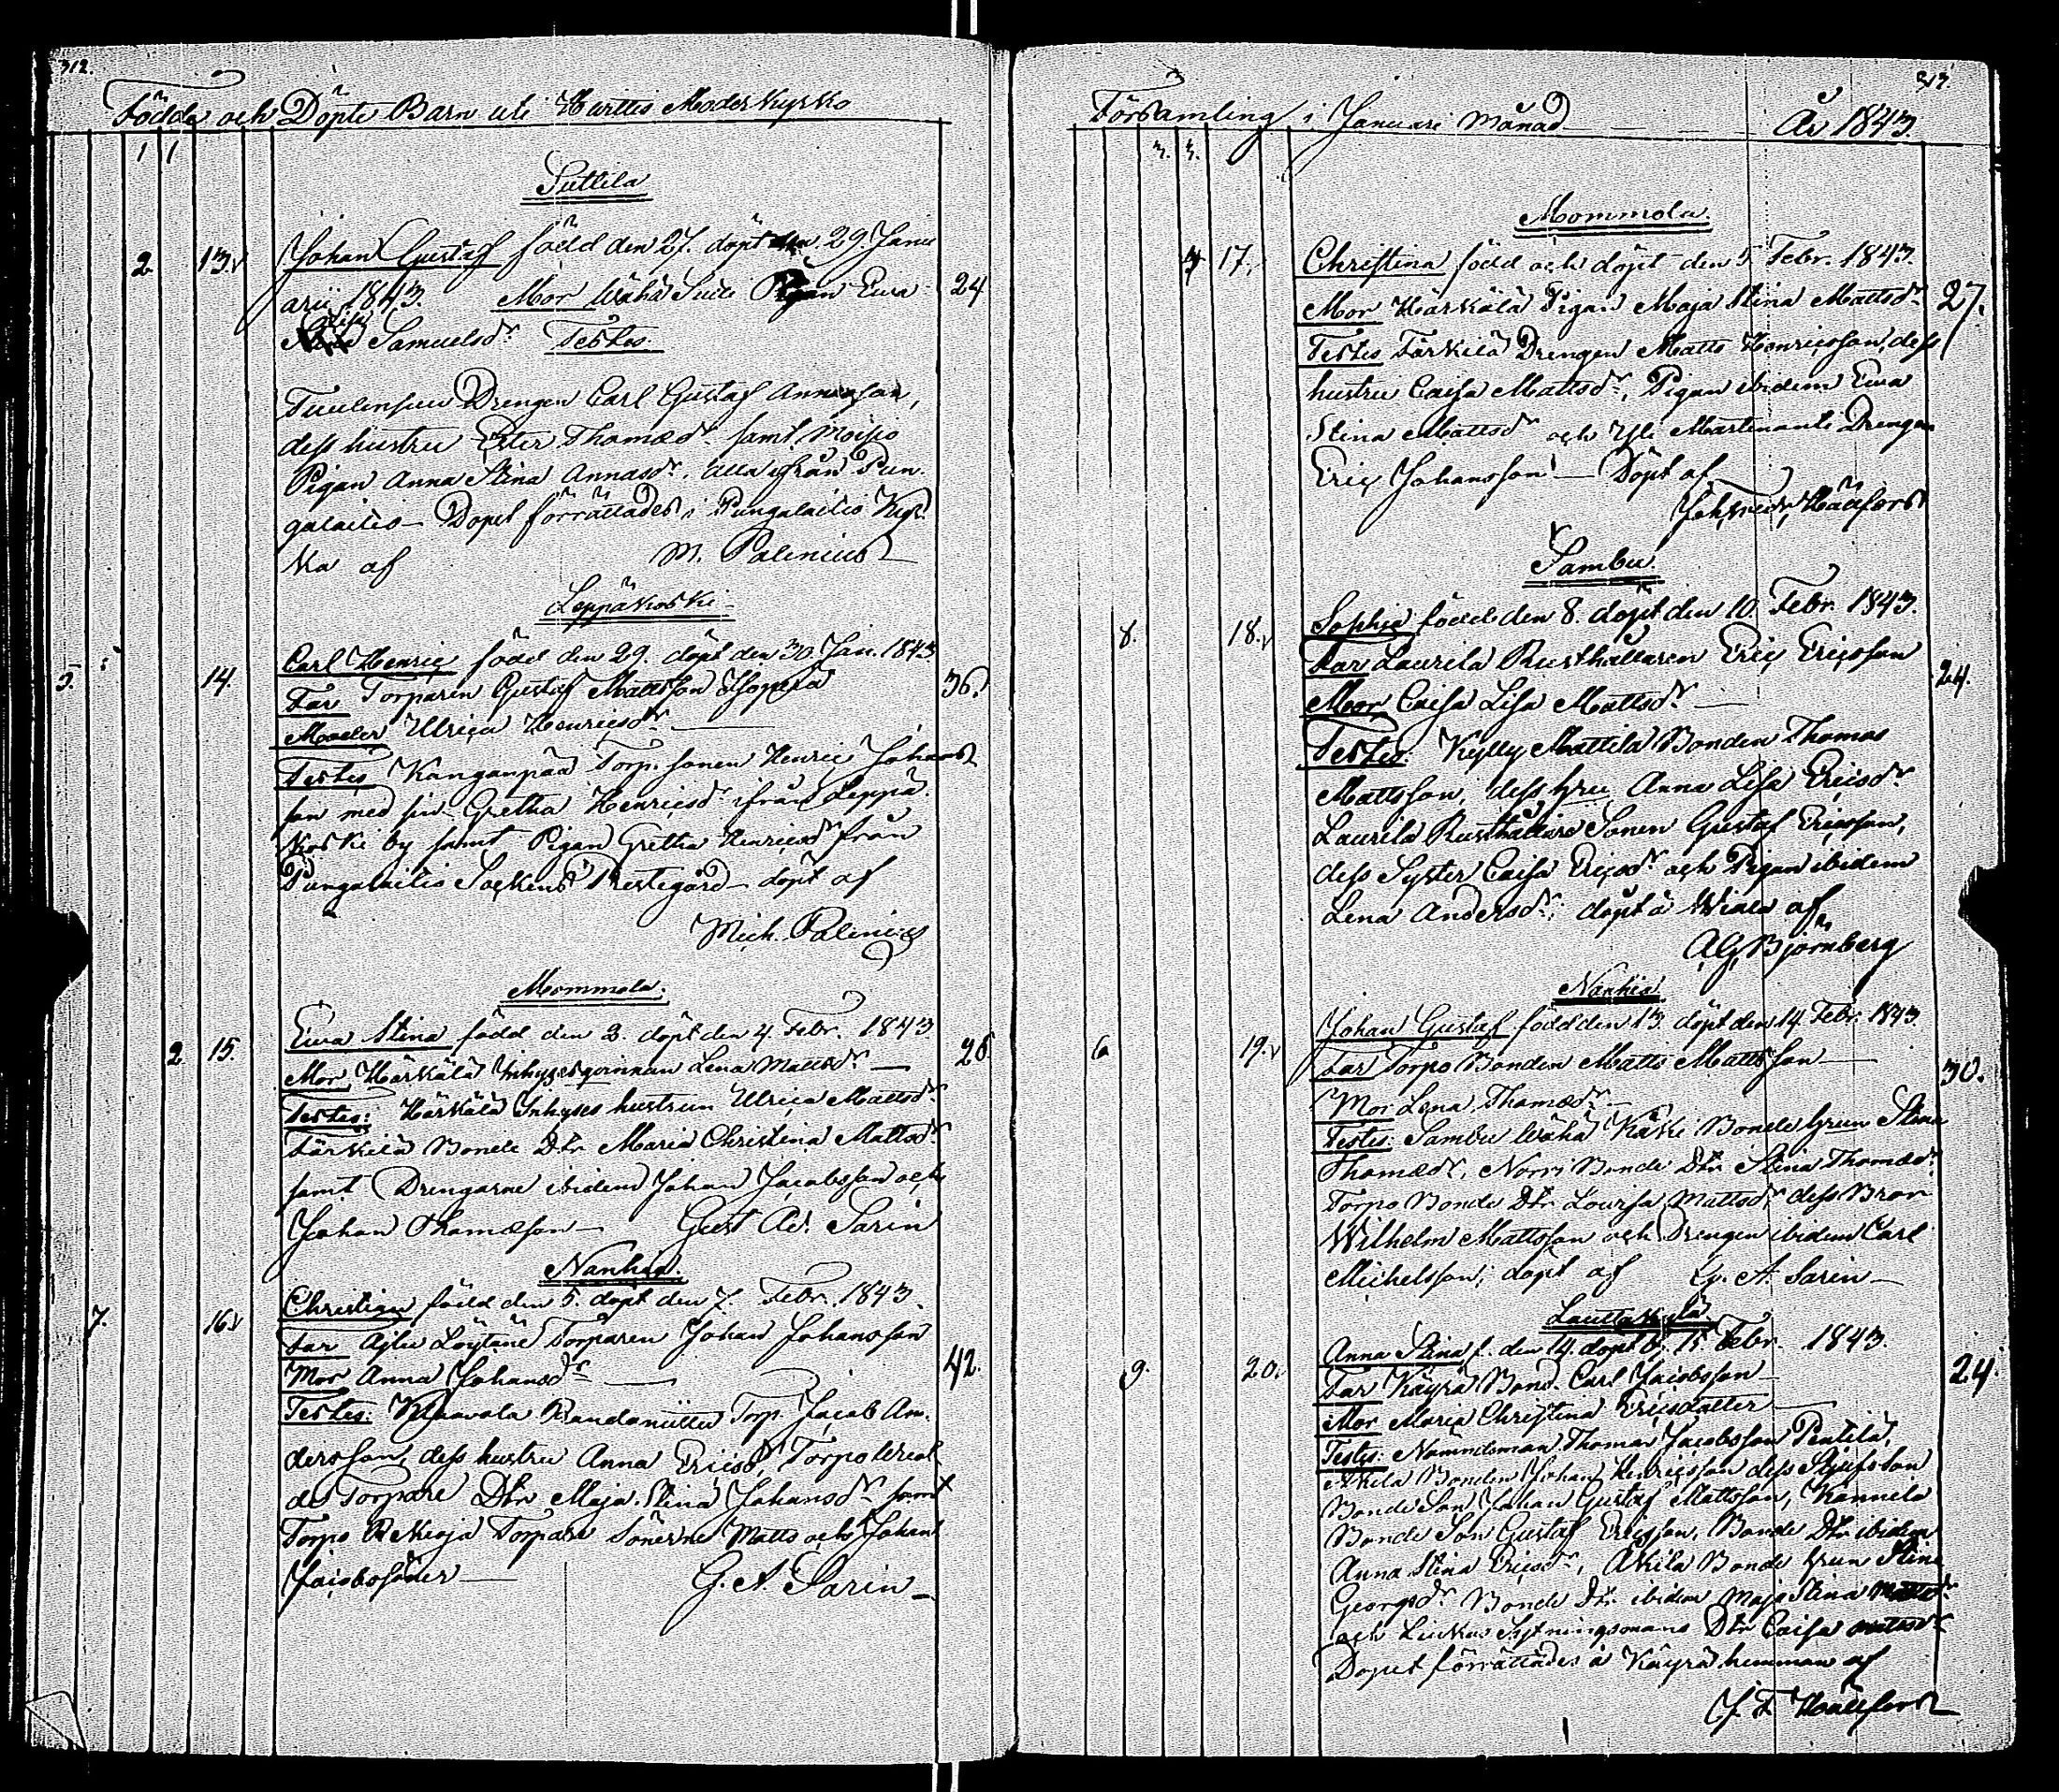 312.
Födde och Döpte Barn uti Huittis Moderkyrko
1 1
Suttila
2 13. Johan Gustaf född den 27. döpt den 29. Janu
arii 1843. Mor Wähä Pigan Ewa 24
Lisa Samuelsdr Testes
Drengen Carl Gustaf
dess hustru Ester Thomasdr samt
Pigan Anna Stina Annasdr. alla ifrån Pun-
galaitio — Dopet förrättades i Pungalaitio Kyr-
ka af M. Palenius
Leppäkoski
5. 14. Carl Henric född den 29. döpt den 30 Jan. 1843
Far Torparen Gustaf Mattsson 36.
Moder Ulrica Henricsdr
Testes Kanganpää Torp. sonen Henric Johans-
son med sin Gretha Henricsdr ifrån Leppä-
koski by samt Pigan Gretha Henricsdr från
Pungalaitio Sockens Prestegård — döpt af
Mich. Palenius
Mommola.
2 15. Ewa Stina född den 2. döpt den 4. Febr. 1843
Mor Härkälä Inhysesqvinnan Lena Mattsdr — 28
Testes: Härkälä Inhyses hustrun Ulrica Mattsdr
Färkilä Bonde Dtr Maria Christina Mattsdr
samt Drengarne ibidem Johan Jacobsson och
Johan Thomasson — Gust Ad. Sarin
Nanhia.
7. 16. Christian född den 5. döpt den 7. Febr. 1843.
Far Löytäne Torparen Johan Johansson
Mor Anna Johansdr 42.
Testes: Torp. Jacob An-
dersson, dess hustru Anna Ericsdr Torpo
Torpare Dtr Maja Stina Johansdr samt
Torpo Torpare Sönerne Matts och Johan
Jacobssöner — G. A. Sarin —
313.
Församling i Januari Månad År 1843.
3. 3.
Mommola.
17. Christina född och döpt den 5. Febr. 1843.
Mor Härkälä Pigan Maja Stina Mattsdr 27.
Testes Färkilä Drengen Matts Henricsson, dess
hustru Caisa Mattsdr, Pigan ibidem Ewa
Stina Mattsdr och Yli Drengen
Eric Johansson — Döpt af
Hällfors
Sambu.
8. 18. Sophia född den 8. döpt den 10. Febr. 1843.
Far Laurila Rusthållaren Eric Ericsson
Mor Caisa Lisa Mattsdr — 24.
Testes: Mattila Bonden Thomas
Mattsson, dess hru Anna Lisa Ericsdr
Laurila Rusthållare Sonen Gustaf Ericsson,
dess Syster Caisa Ericsdr och Pigan ibidem
Lena Andersdr; döpt å Wiala af
A. G. Björnberg
Nanhia
6 19. Johan Gustaf född den 13. döpt den 14. Febr. 1843.
Far Torpo Bonden Matts Mattsson
Mor Lena Thomasdr 30.
Testes: Sambu Wähä Käki Bonde hrun Stina
Thomasdr, Norri Bonde Dtr Stina Thomasdr
Torpo Bonde Dtr Lovisa Mattsdr dess Bror
Wilhelm Mattsson och Drengen ibidem Carl
Michelsson; döpt af G. A. Sarin —
Lauttakylä
9. 20. Anna Stina f. den 14. döpt d. 15. Febr. 1843.
Far Käyrä Bond. Carl Jacobsson 24.
Mor Maria Christina Ericsdotter
Testes: Nämndeman Thomas Jacobsson Penttilä,
Bonden Johan Henricsson dess Stjufson
Bonde Son Johan Gustaf Mattsson, Kannila
Bonde Son Gustaf Ericsson, Bonde Dtr ibidem
Anna Stina Ericsdr, Bonde hrun Stina
Georgsdr Bonde Dtr ibidem Maja Stina Mattsdr
och Sytningsmans Dtr Caisa Mattsdr
Dopet förrättades å Käyrä hemman af
J. F. Hällfors